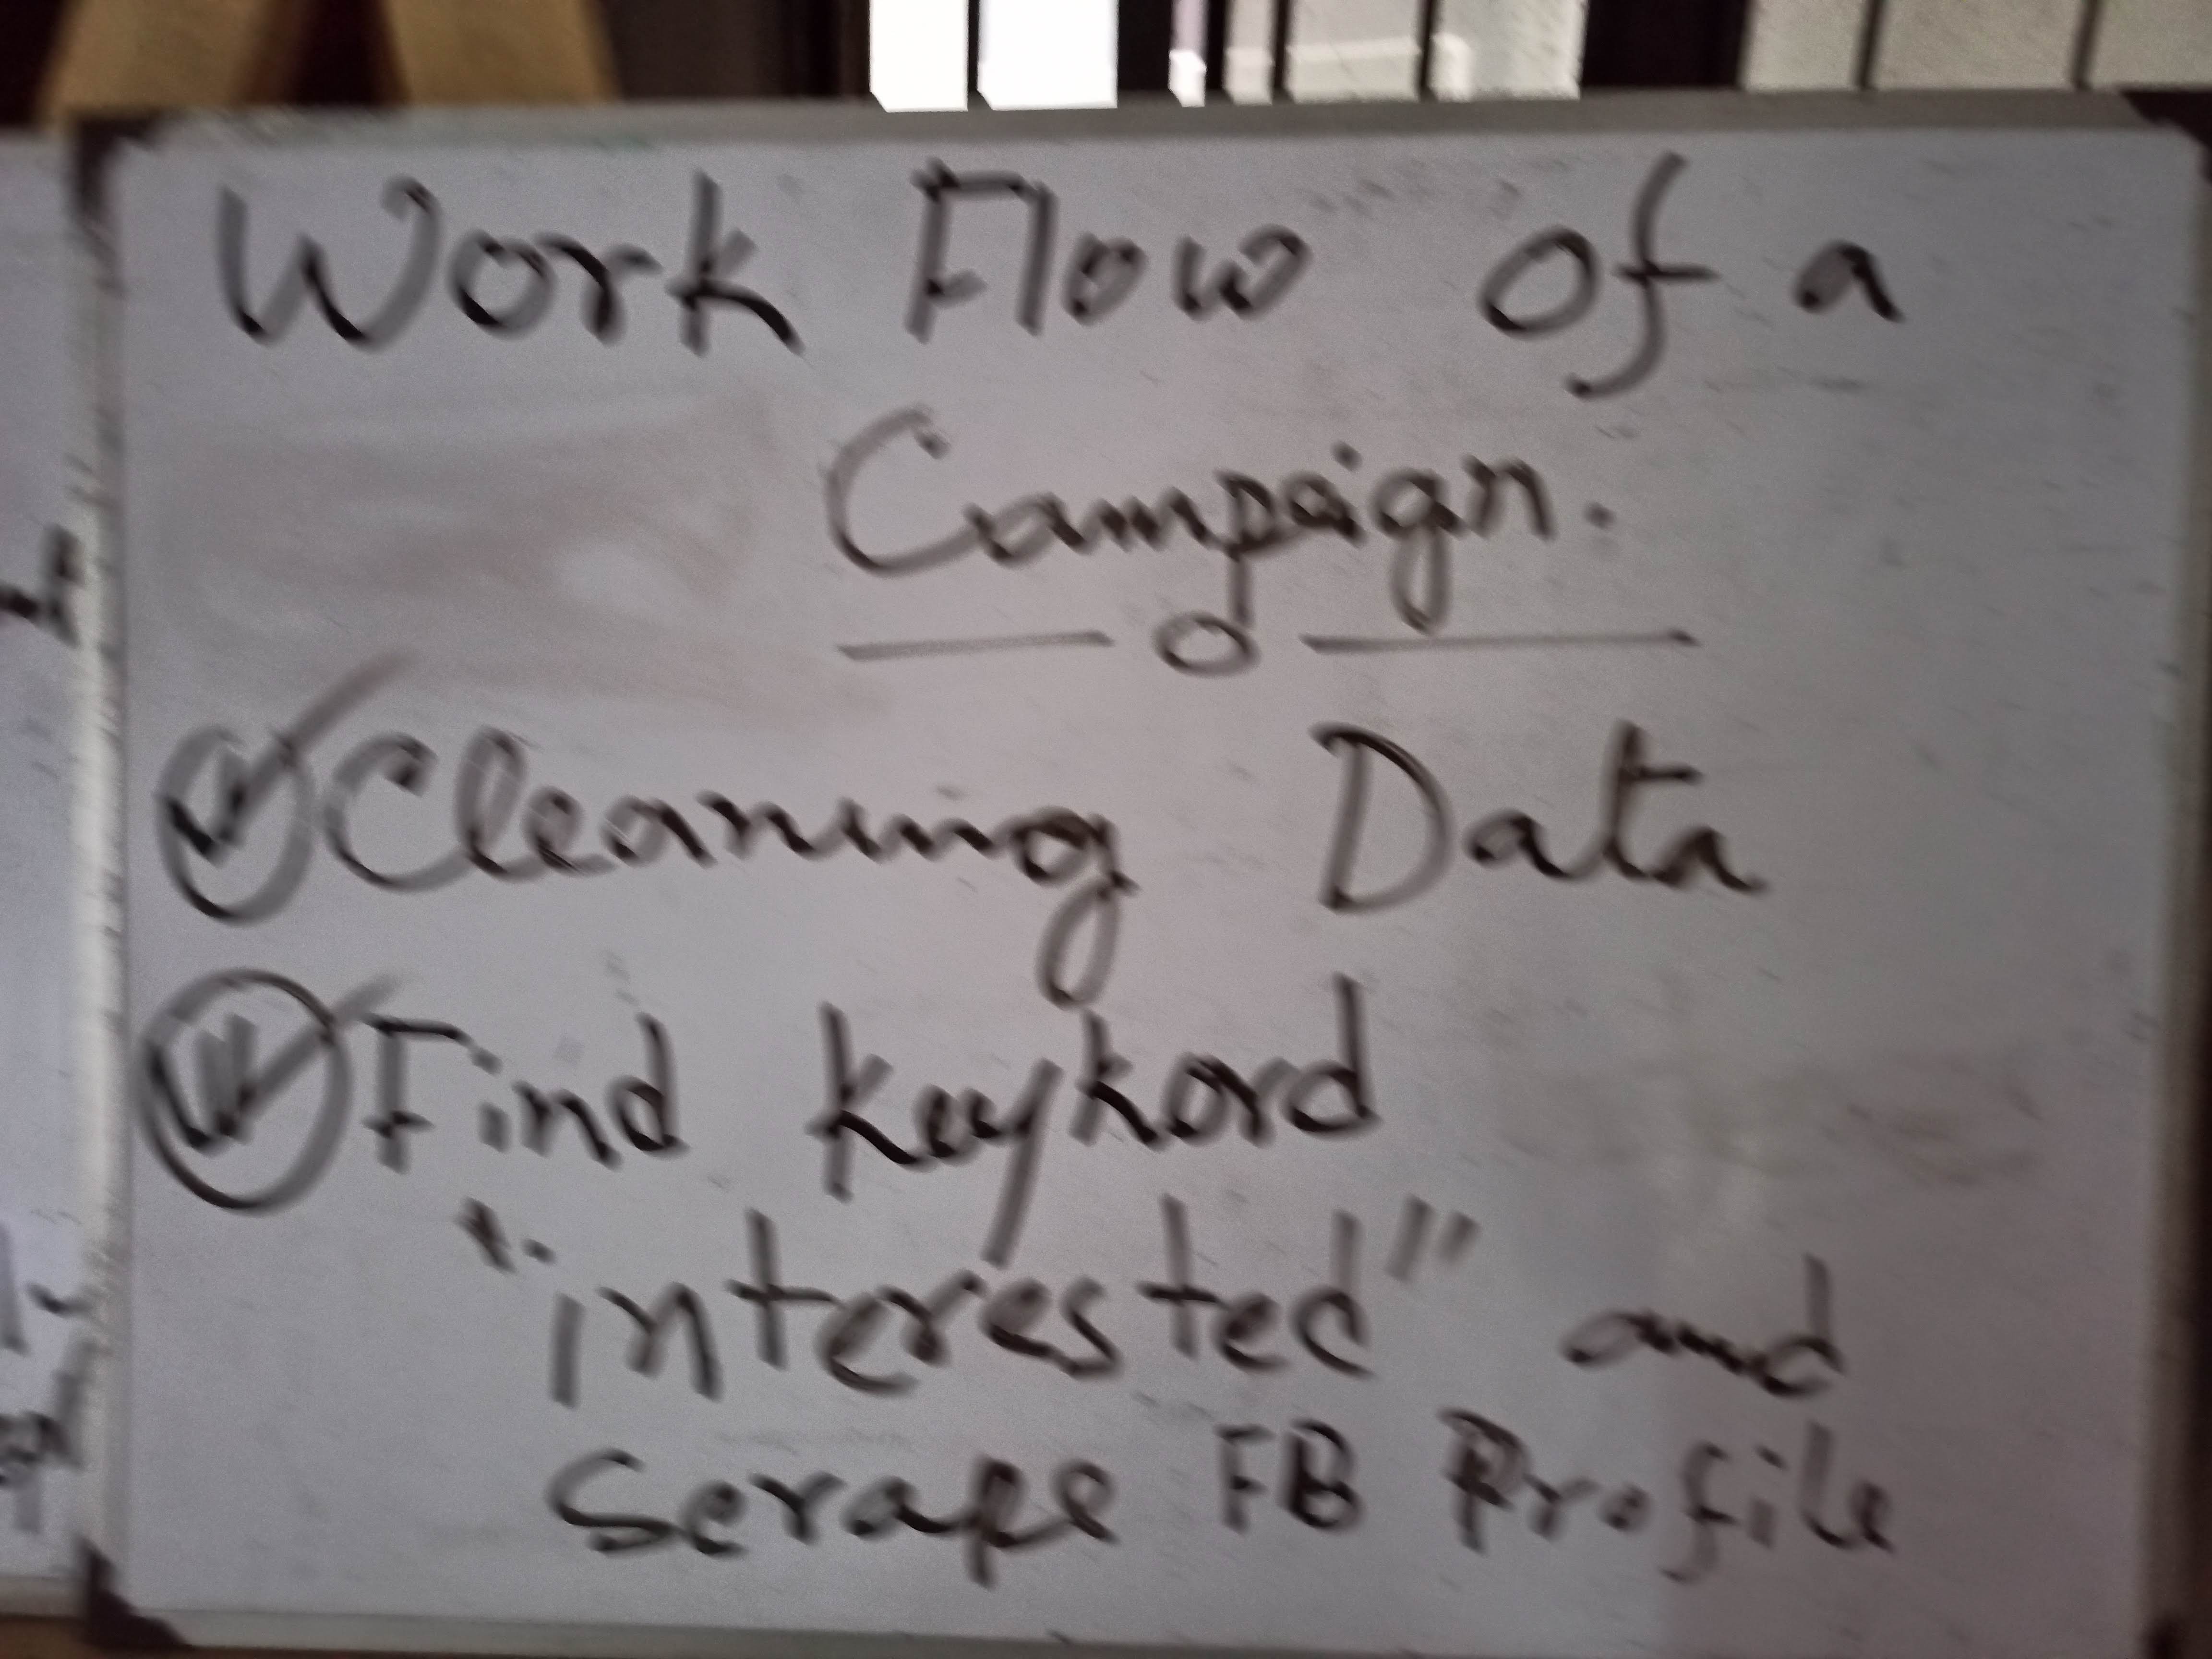 Work Flow of a
Campaign.
Cleaning Data
Find keykord
"interested" and
Scrape FB Profile